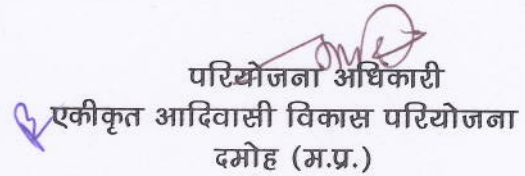 परियोजना अधिकारी
एकीकृत आदिवासी विकास परियोजना
दमोह (म.प्र.)